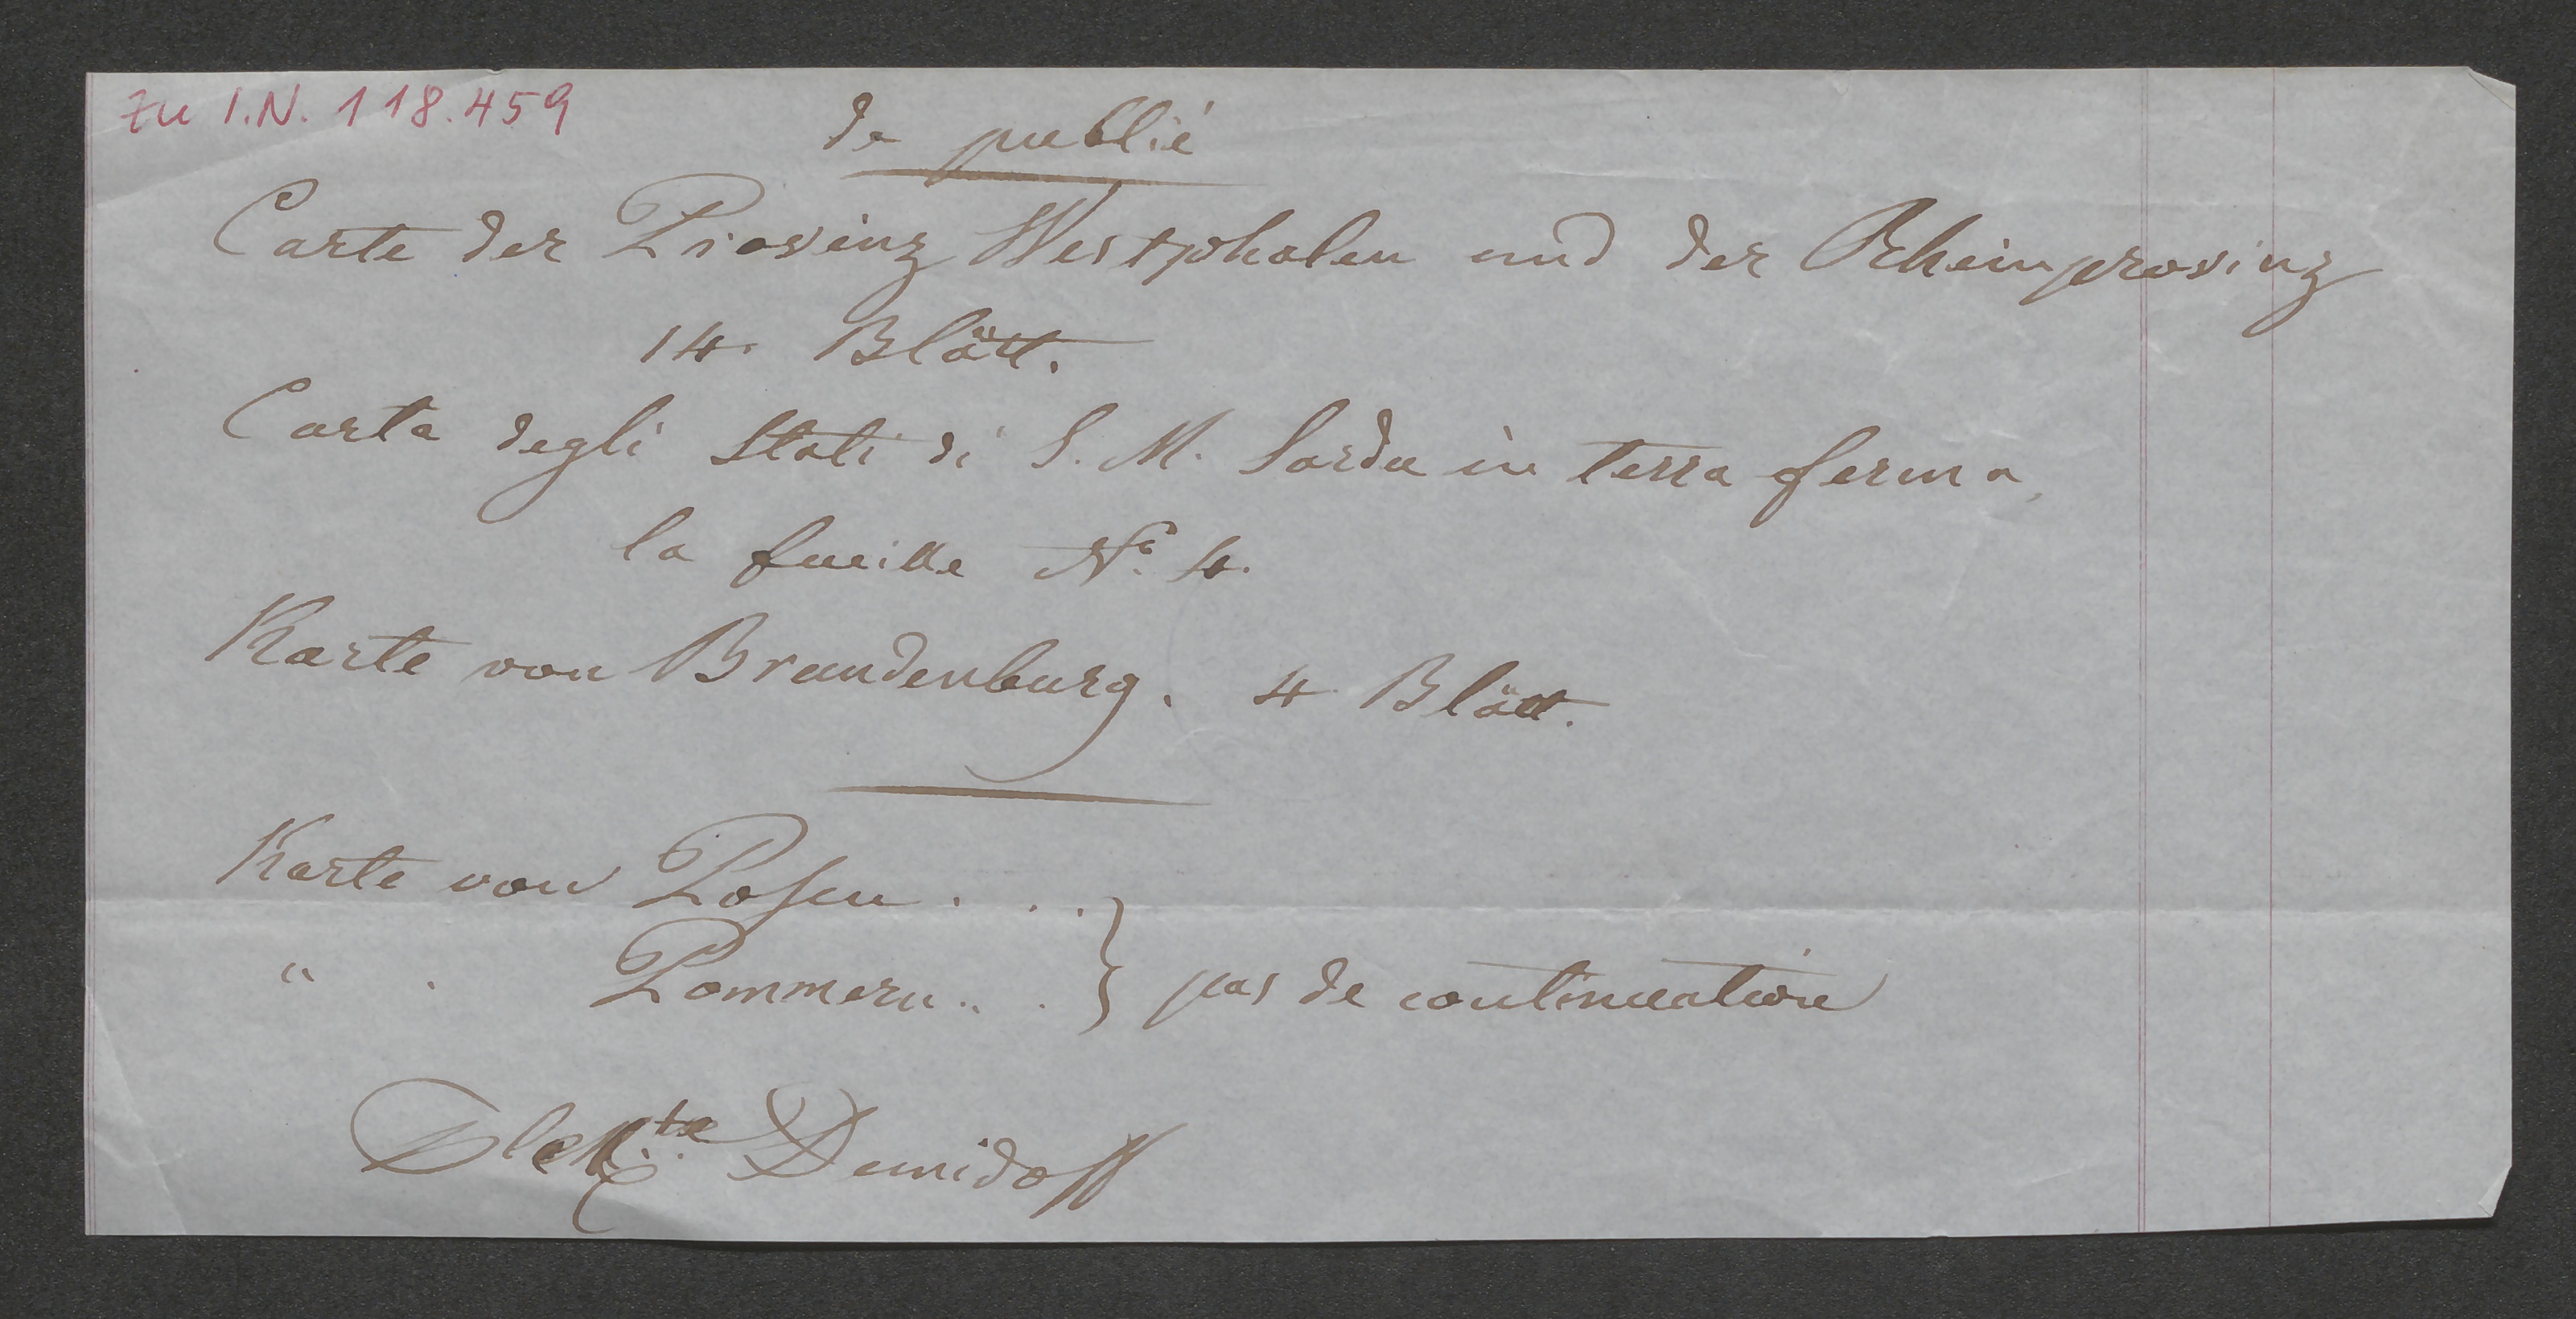 zu I.N. 118.459
de publié
Carte der Provinz Westphalen und der Rheinprovinz
14. Blätt.
Carta degli Stati di S. M. Sarda in terra ferma,
la fueille Nº 4.
Karte von Brandenburg. 4 Blätt.
Karte von Posen . . .
" . Pommern . . } pas de continuation
Demidoff